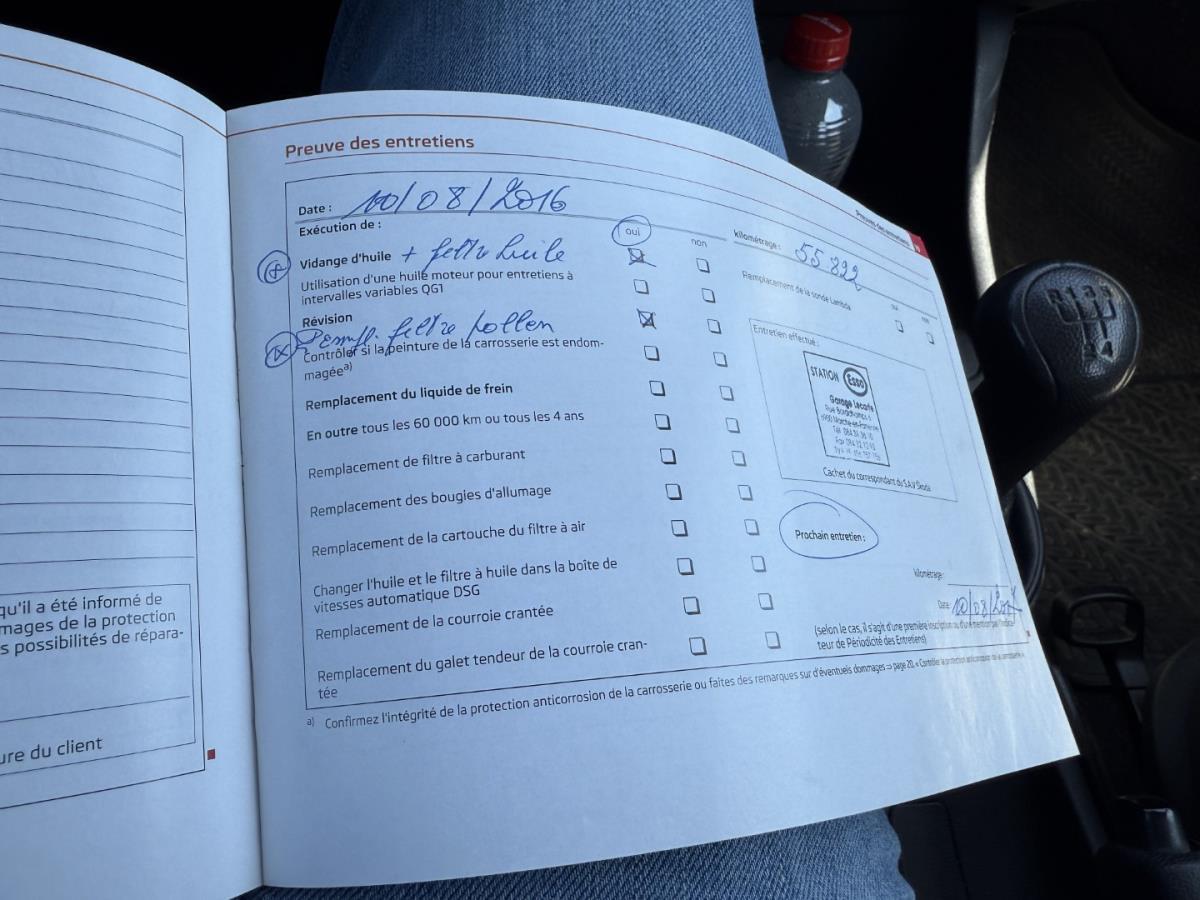 qu'il a été informé de
mages de la protection
s possibilités de répara-
ure du client
Preuves des entretiens
Preuve des entretiens
Date : 10/08/2016
Exécution de :
oui
non
kilométrage : 55 822
Vidange d'huile + filtre huile
Utilisation d'une huile moteur pour entretiens à
intervalles variables QG1
Révision
Rempl. filtre Pollen
Contrôler si la peinture de la carrosserie est endom-
magée a)
Remplacement du liquide de frein
En outre tous les 60 000 km ou tous les 4 ans
Remplacement de filtre à carburant
Remplacement des bougies d'allumage
Remplacement de la cartouche du filtre à air
Changer l'huile et le filtre à huile dans la boîte de
vitesses automatique DSG
Remplacement de la courroie crantée
Remplacement du galet tendeur de la courroie cran-
tée
Remplacement de la sonde Lambda
oui
non
Entretien effectué :
STATION Esso
Garage Lecarte
Cachet du correspondant du S.A.V Škoda
Prochain entretien :
kilométrage :
Date: 10/08/2017
(selon le cas, il s'agit d'une première inscription ou d'une mention par l'indica-
teur de Périodicité des Entretiens)
a) Confirmez l'intégrité de la protection anticorrosion de la carrosserie ou faites des remarques sur d'éventuels dommages ⇒ page 20, « Contrôler la protection anticorrosion de la carrosserie ».
R 1 3 5
2 4